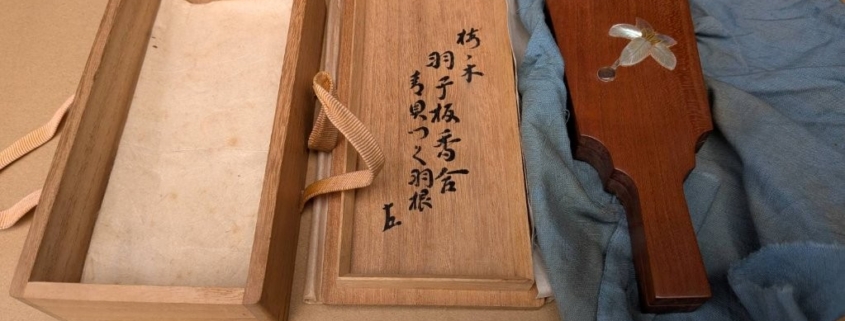 梅ノ木
羽子板香合
青貝つく羽根
五